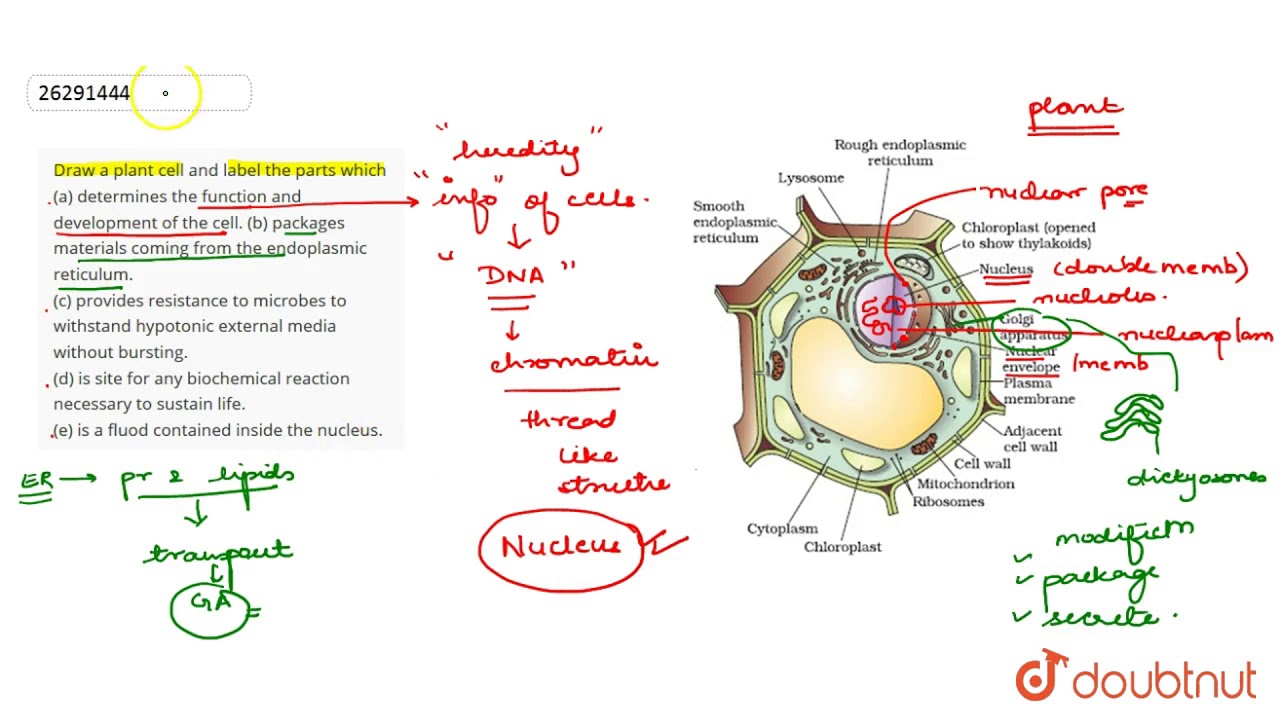 26291444
Draw a plant cell and label the parts which
(a) determines the function and
development of the cell. (b) packages
materials coming from the endoplasmic
reticulum.
(c) provides resistance to microbes to
withstand hypotonic external media
without bursting.
(d) is site for any biochemical reaction
necessary to sustain life.
(e) is a fluod contained inside the nucleus.
ER → pr & lipids
transport
GA
"heredity"
"info" of cells.
"DNA"
chromatin
thread
like
Nucleus
plant
Rough endoplasmic
reticulum
Lysosome
Smooth
endoplasmic
reticulum
nuclear pore
Chloroplast (opened
to show thylakoids)
Nucleus (double memb)
nucleolus.
Golgi
apparatus
Nuclear
envelope /memb
Plasma
membrane
Adjacent
cell wall
Cell wall
Mitochondrion
Ribosomes
Cytoplasm
Chloroplast
dictyosomes
package
secrete.
doubtnut